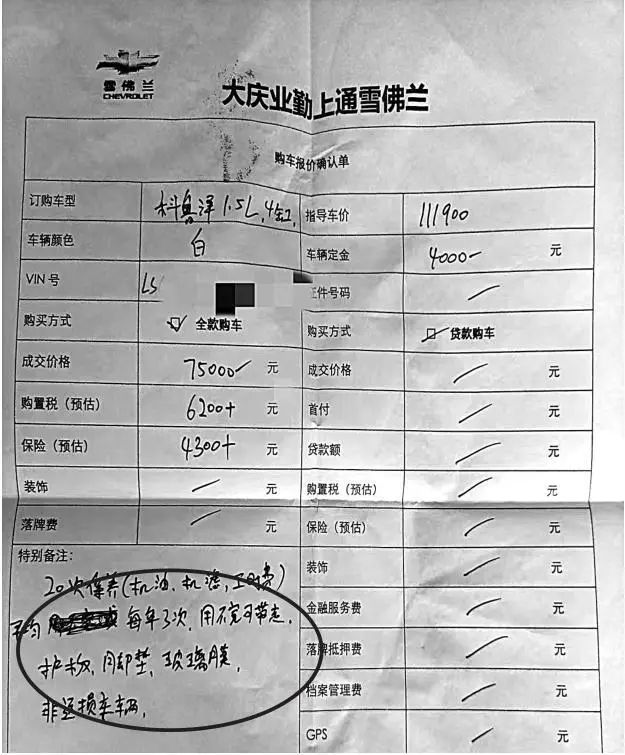 雪佛兰
CHEVROLET
大庆业勤上通雪佛兰
购车报价确认单
订购车型 科鲁泽 1.5L,4缸, 指导车价 111900
车辆颜色 白 车辆定金 4000- 元
VIN 号 LS 证件号码
购买方式 ☑ 全款购车 购买方式 □ 贷款购车
成交价格 75000 元 成交价格 元
购置税（预估） 6200+ 元 首付 元
保险（预估） 4300+ 元 贷款额 元
装饰 元 购置税（预估） 元
落牌费 元 保险（预估） 元
特别备注： 装饰 元
20次保养(机油、机滤,工时费)
平均 每年3次,用不完可带走, 金融服务费 元
护板、脚垫、玻璃膜, 落牌抵押费 元
非运损车辆, 档案管理费 元
GPS 元